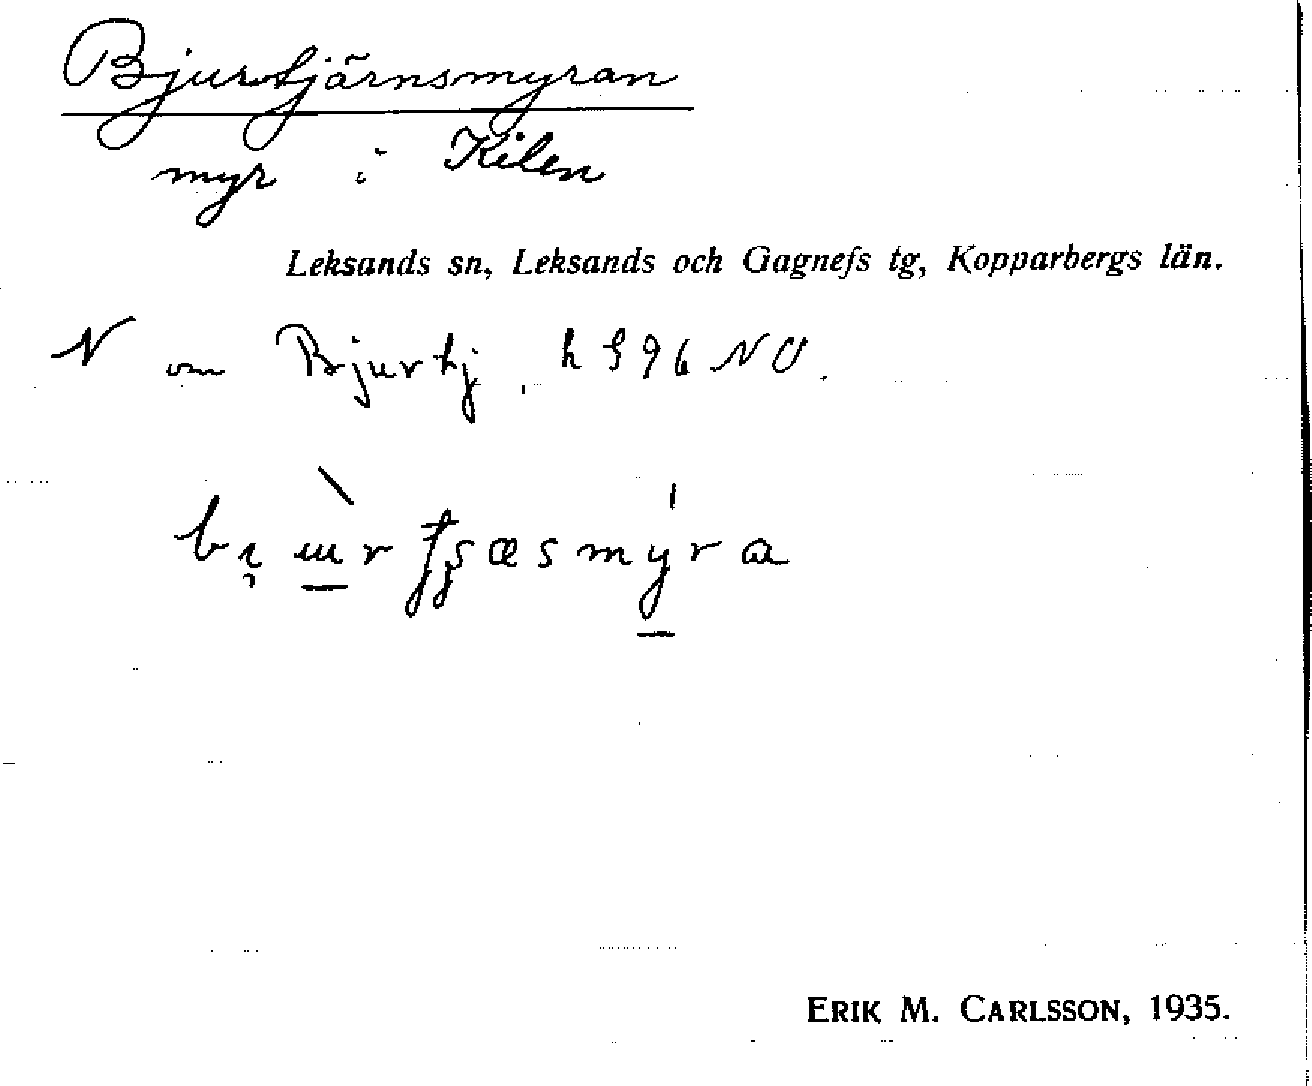 Bjurtjärnsmyran
myr i Kilen
Leksands sn, Leksands och Gagnefs tg, Kopparbergs län.
N om Bjurtj. h 596 NO.
ERIK M. CARLSSON, 1935.